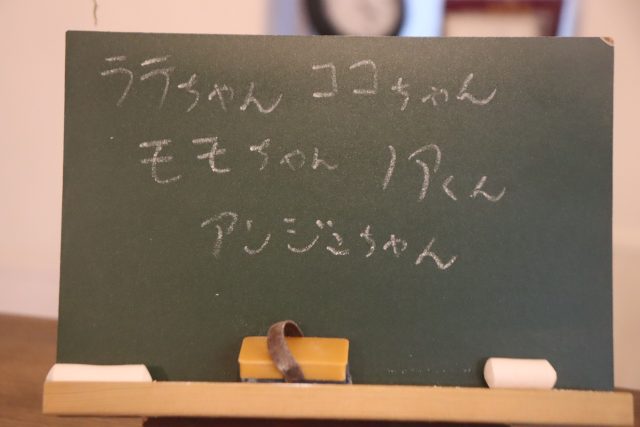 ララちゃん ココちゃん
モモちゃん ノアくん
アンジュちゃん